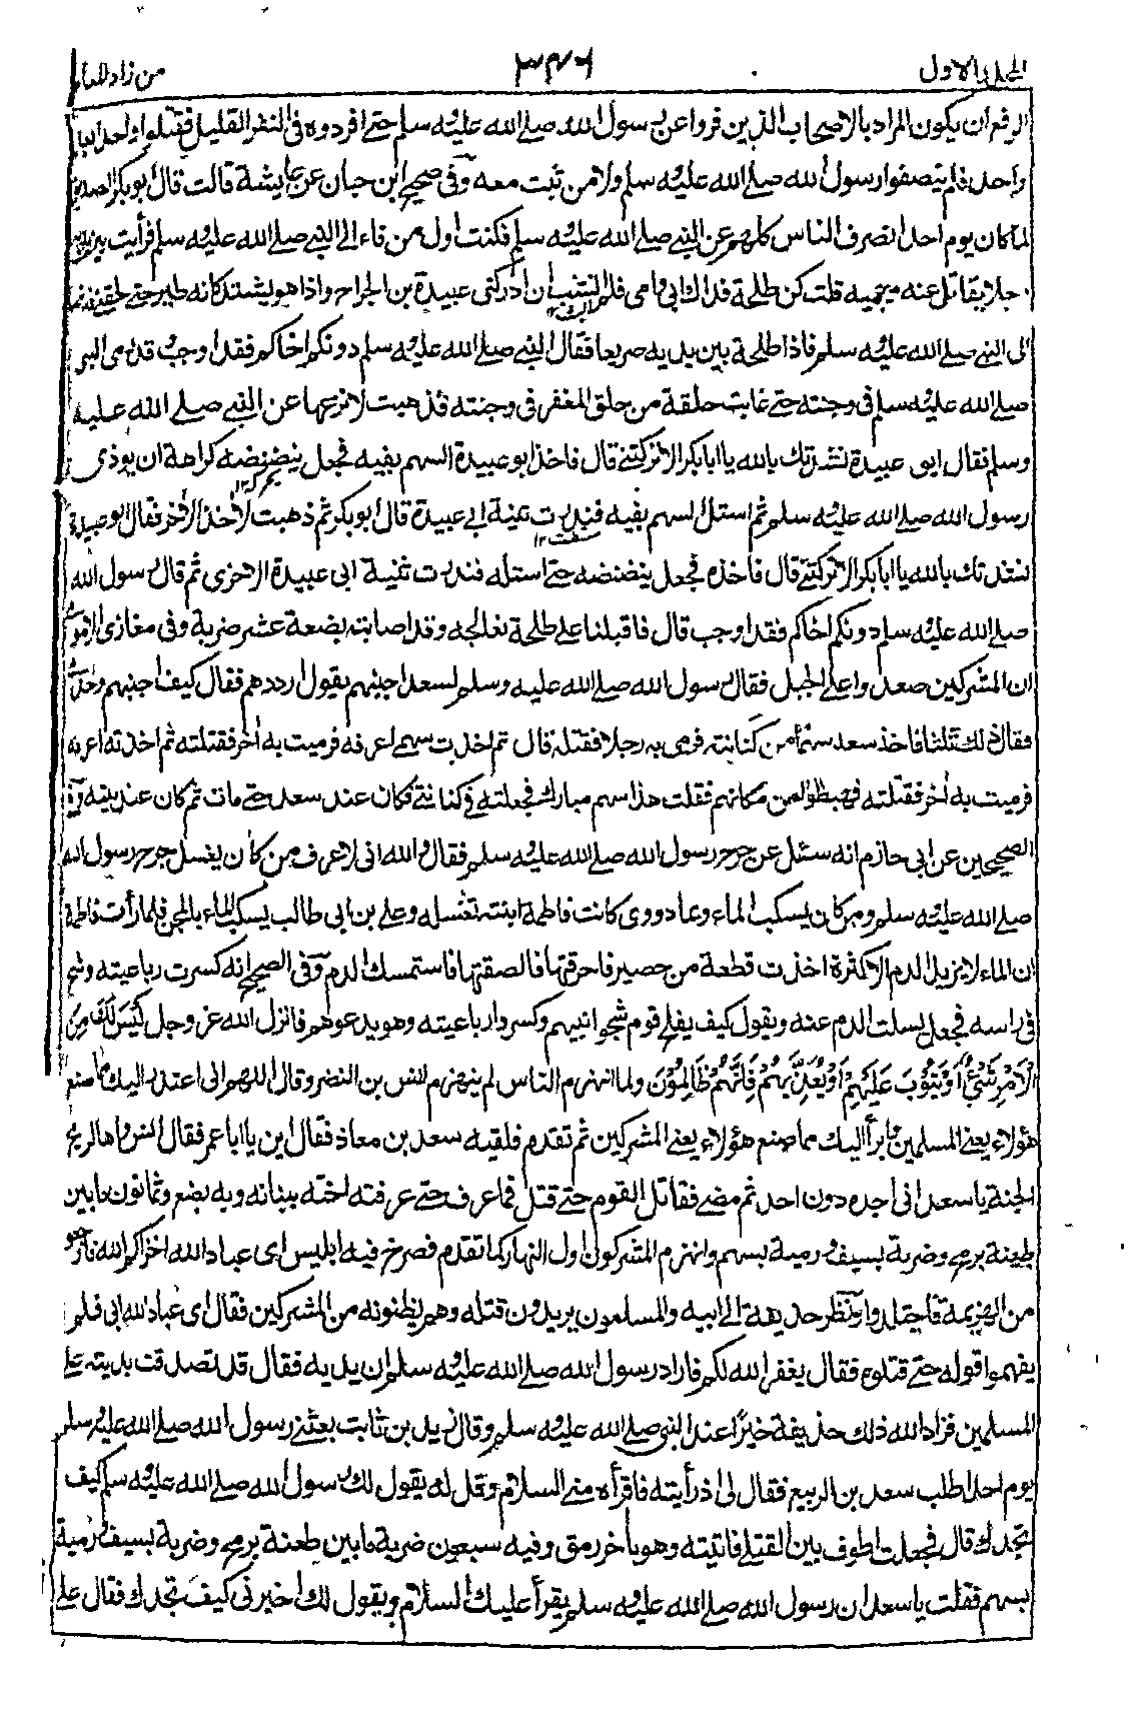 المجلد الاول ٣٤٦ من زاد المعاد
الرفع ان يكون المراد بالاصحاب الذين فروا عن رسول الله صلے الله عليه سلم حتے افردوه فى النفر القليل فقتلوا واحدا بعد
واحد فلم ينصفوا رسول الله صلے الله عليه سلم ولا من ثبت معه وفى صحيح ابن حبان عن عايشة قالت قال ابو بكر الصديق
لما كان يوم احد انصرف الناس كلهم عن النبے صلے الله عليه سلم فكنت اول من فاء الى النبے صلے الله عليه سلم فرأيت بين يديه
رجلا يقاتل عنه ويحميه قلت كن طلحة فداك ابى وامى فلم انشب ان ادركنى عبيدة بن الجراح واذا هو يشتد كانه طير حتے لحقنے فدفعنا
الى النبے صلے الله عليه سلم فاذا طلحة بين يديه صريعا فقال النبے صلے الله عليه سلم دونكم اخاكم فقد اوجب وقد رمى النبى
صلے الله عليه سلم فى وجنته حتے غابت حلقة من حلق المغفر فى وجنته فذهبت لانزعها عن النبے صلے الله عليه
وسلم فقال ابو عبيدة نشدتك بالله يا ابا بكر الا تركتنے قال فاخذ ابو عبيدة السهم بفيه فجعل ينضنضه كراهة ان يوذى
رسول الله صلے الله عليه سلم ثم استل السهم بفيه فندرت ثنية ابى عبيدة قال ابو بكر ثم ذهبت لاخذ الاخر فقال ابو عبيدة
نشدتك بالله يا ابا بكر الا تركتنے قال فاخذه فجعل ينضنضه حتے استله فندرت ثنية ابى عبيدة الاخرى ثم قال رسول الله
صلے الله عليه سلم دونكم اخاكم فقد اوجب قال فاقبلنا على طلحة نعالجه وقد اصابته بضعة عشر ضربة وفى مغازى الاموى
ان المشركين صعدوا على الجبل فقال رسول الله صلے الله عليه وسلم لسعد اجنبهم يقول ارددهم فقال كيف اجنبهم وحدى
فقال ذلك ثلثا فاخذ سعد سهما من كنانته فرمى به رجلا فقتله قال ثم اخذت سهمے اعرفه فرميت به اخر فقتلته ثم اخذته اعرفه
فرميت به اخر فقتلته فهبطوا من مكانهم فقلت هذا سهم مبارك فجعلته فى كنانتے فكان عند سعد حتے مات ثم كان عند بنيه وفى
الصحيحين عن ابى حازم انه سئل عن جرح رسول الله صلے الله عليه سلم فقال والله انى لاعرف من كان يغسل جرح رسول الله
صلے الله عليه سلم ومن كان يسكب الماء وبما دووى كانت فاطمة ابنته تغسله وعلى بن ابى طالب يسكب الماء بالمجن فلما رأت فاطمة
ان الماء لا يزيد الدم الا كثرة اخذت قطعة من حصير فاحرقتها فالصقتها فاستمسك الدم وفى الصحيح انه كسرت رباعيته وشج
فى راسه فجعل يسلت الدم عنه ويقول كيف يفلح قوم شجوا نبيهم وكسروا رباعيته وهو يدعوهم فانزل الله عز وجل لَيْسَ لَكَ مِنَ
الْاَمْرِ شَيْءٌ اَوْ يَتُوْبَ عَلَيْهِمْ اَوْ يُعَذِّبَهُمْ فَاِنَّهُمْ ظَالِمُوْنَ ولما انهزم الناس لم ينهزم انس بن النضر وقال اللهم انى اعتذر اليك مما صنع
هؤلاء يعنے المسلمين وابرأ اليك مما صنع هؤلاء يعنے المشركين ثم تقدم فلقيه سعد بن معاذ فقال اين يا ابا عمر فقال انس واها لريح
الجنة يا سعد انى اجده دون احد ثم مضے فقاتل القوم حتے قتل فما عرف حتے عرفته اخته ببنانه وبه بضع وثمانون ما بين
طعنة برمح وضربة بسيف ورمية بسهم وانهزم المشركون اول النهار كما تقدم فصرخ فيه ابليس اى عباد الله اخراكم الله فارجعوا
من الهزيمة فاجتلدوا ونظر حذيفة الى ابيه والمسلمون يريدون قتله وهم يظنونه من المشركين فقال اى عباد الله ابى فلم
يفهموا قوله حتے قتلوه فقال يغفر الله لكم فاراد رسول الله صلے الله عليه سلم ان يديه فقال قد تصدقت بديته على
المسلمين فزاد الله ذلك حذيفة خيرًا عند النبى صلے الله عليه سلم وقال زيد بن ثابت بعثنے رسول الله صلے الله عليه سلم
يوم احد اطلب سعد بن الربيع فقال لى اذ رأيته فاقرأه منے السلام وقل له يقول لك رسول الله صلے الله عليه سلم كيف
تجدك قال فجعلت اطوف بين القتلے فاتيته وهو باخر رمق وفيه سبعون ضربة ما بين طعنة برمح وضربة بسيف ورمية
بسهم فقلت يا سعد ان رسول الله صلے الله عليه سلم يقرأ عليك السلام ويقول لك اخبرنى كيف تجدك فقال على